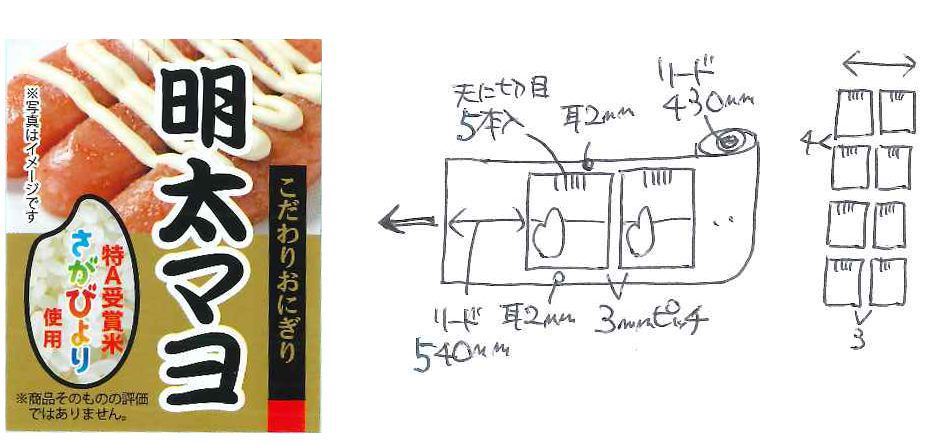 ※写真はイメージです
明太マヨ
こだわりおにぎり
特A受賞米
さがびより
使用
※商品そのものの評価
ではありません。
天に切目
5本入
耳2mm
リード
430mm
リード
540mm
耳2mm
3mmピッチ
4
3